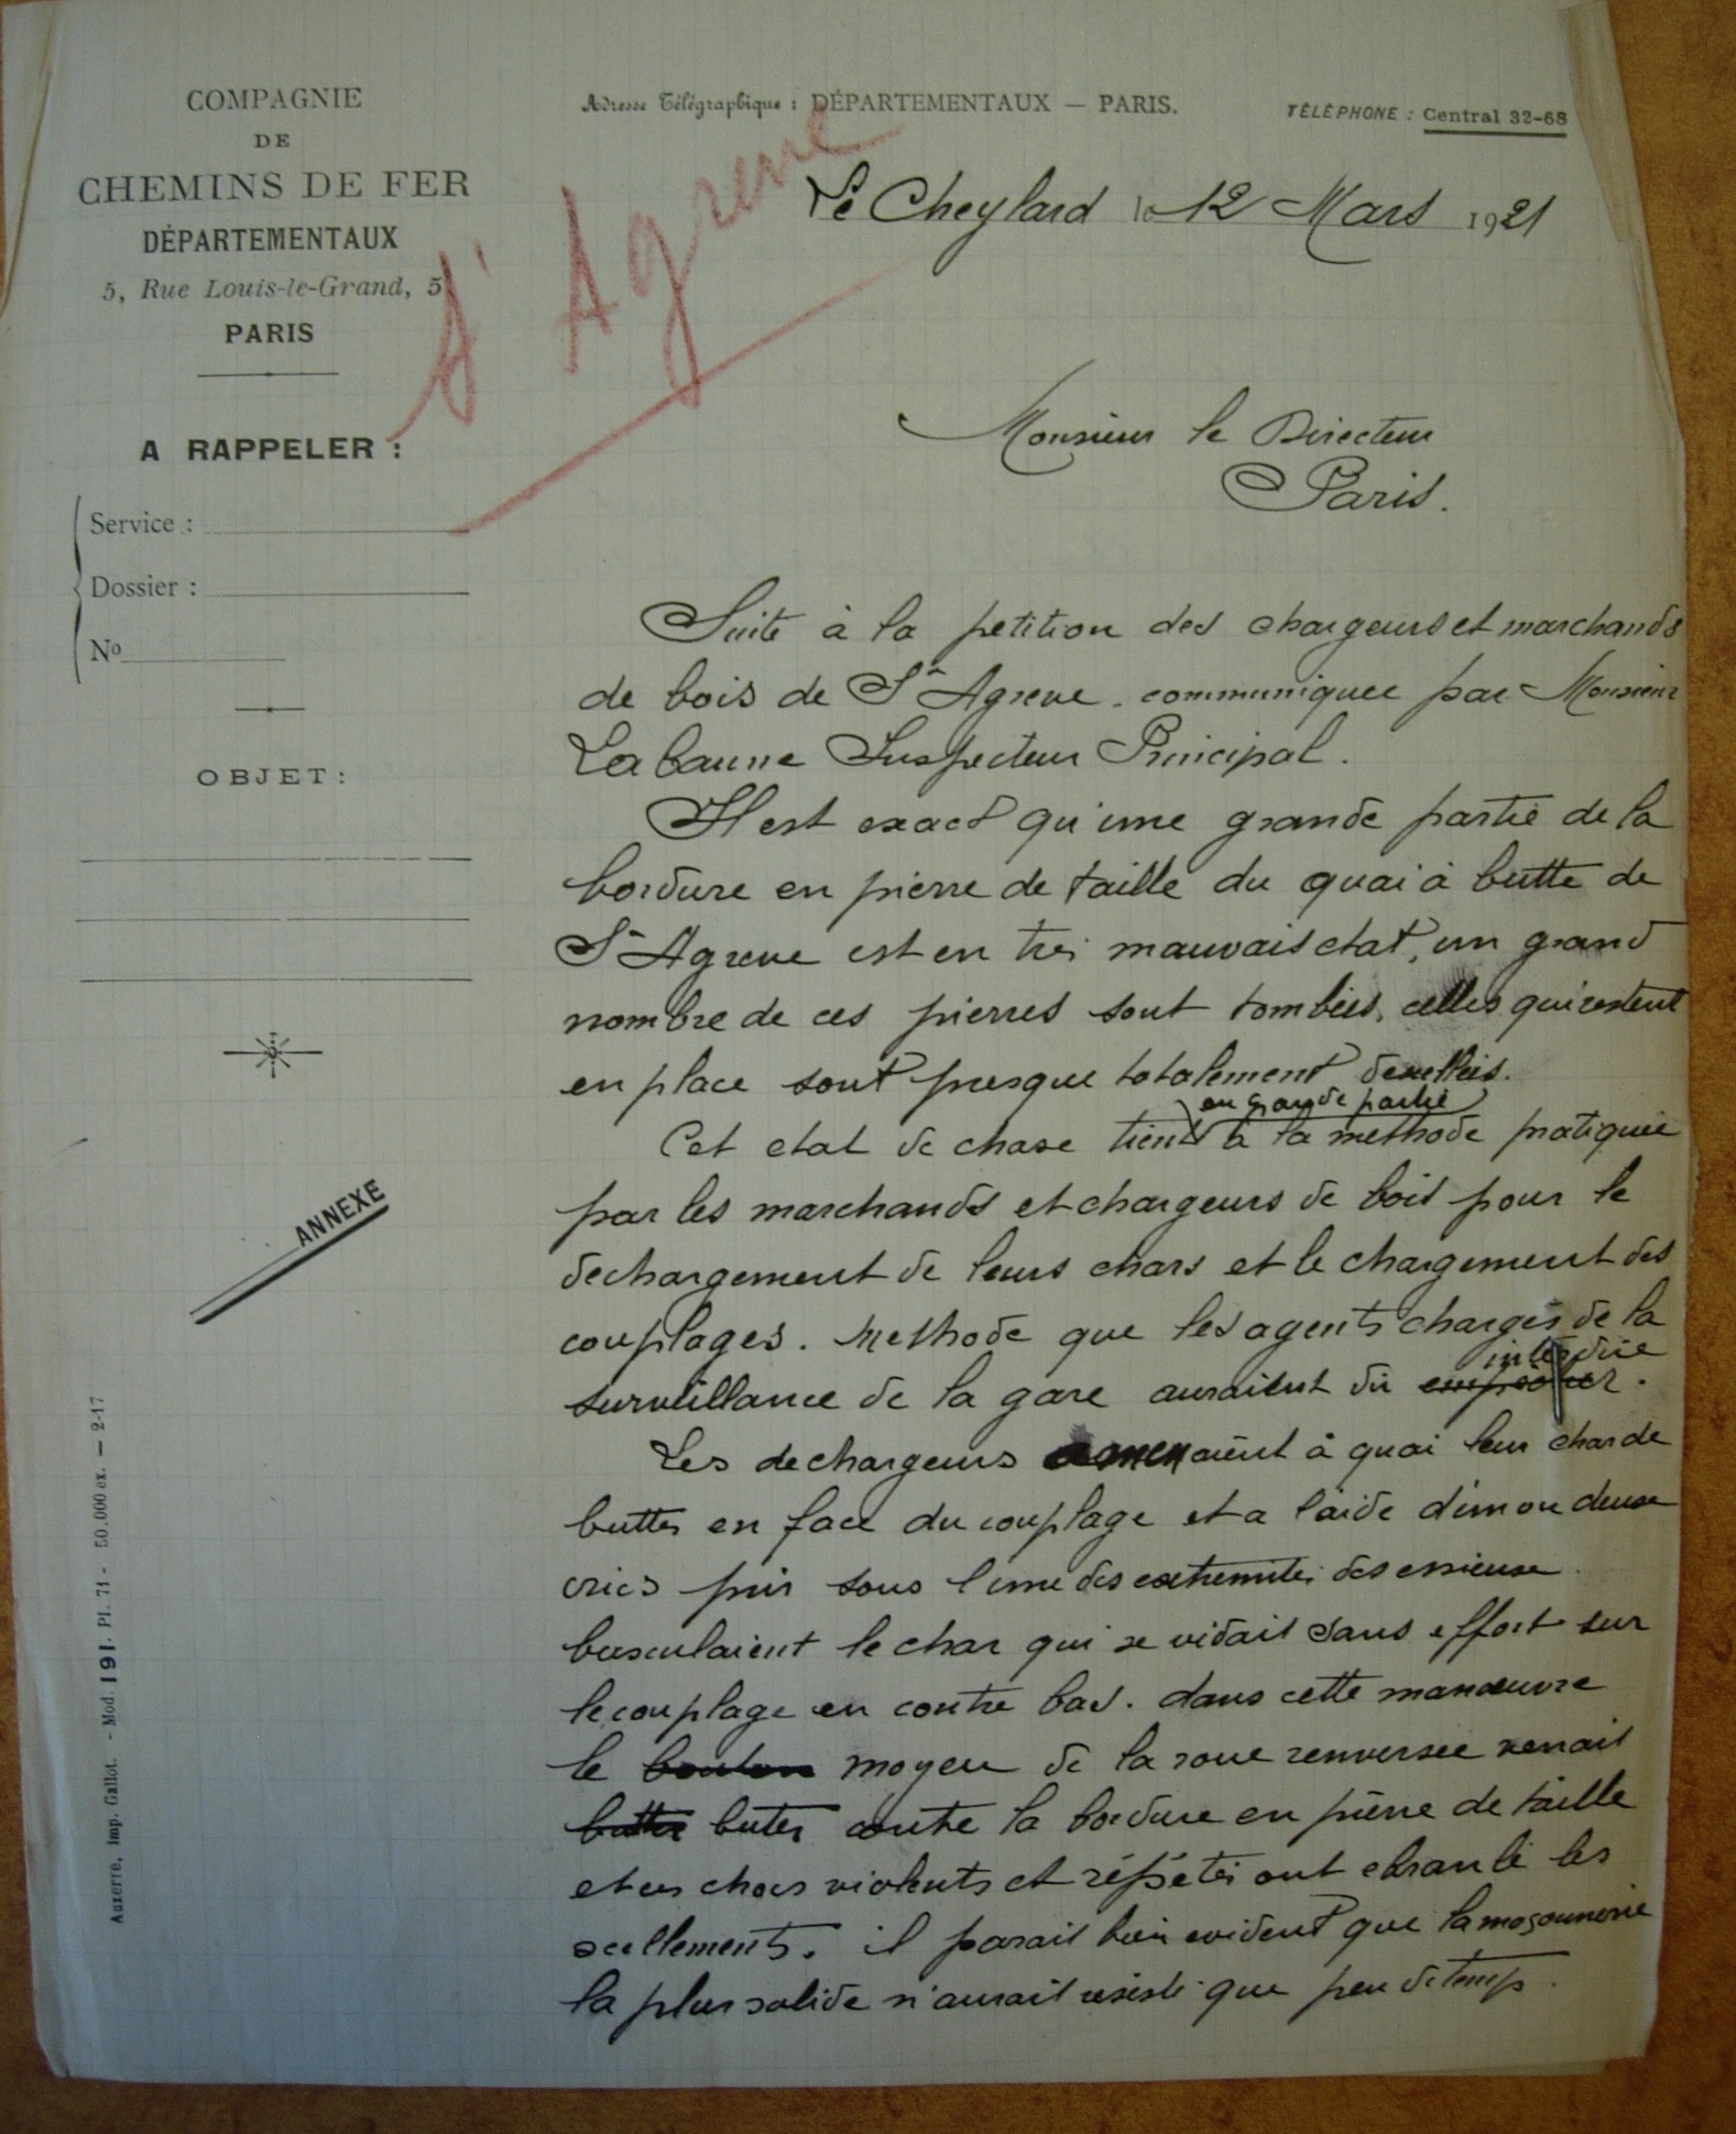 COMPAGNIE
DE
CHEMINS DE FER
DÉPARTEMENTAUX
5, Rue Louis-le-Grand, 5
PARIS
A RAPPELER :
Service :
Dossier :
No
OBJET :
ANNEXE
Auxerre, Imp. Gallot. - Mod. 191. Pl. 71 - 50.000 ex. — 2-17
Adresse Télégraphique : DÉPARTEMENTAUX — PARIS.
TÉLÉPHONE : Central 32-68
St Agreve
Le Cheylard le 12 Mars 1921
Monsieur le Directeur
Paris.
Suite à la petition des chargeurs et marchands
de bois de St Agreve. communiquee par Monsieur
Labaume Inspecteur Principal.
Il est exact qu'une grande partie de la
bordure en pierre de taille du quai à butte de
St Agreve est en tres mauvais etat, un grand
nombre de ces pierres sont tombées, celles qui restent
en place sont presque totalement descellées.
en grande partie
Cet etat de chose tient à la methode pratiquée
par les marchands et chargeurs de bois pour le
dechargement de leurs chars et le chargement des
couplages. Methode que les agents chargés de la
interdire
surveillance de la gare auraient dû empecher.
Les dechargeurs amenaient à quai leur char de
buttes en face du couplage et a l'aide d'un ou deux
crics pris sous l'une des extremites des essieux
basculaient le char qui se vidait sans effort sur
le couplage en contre bas. dans cette manœuvre
le boulon moyeu de la roue renversee venait
butter buter contre la bordure en pierre de taille
et ces chocs violents et répétés ont ebranlé les
scellements. il parait bien evident que la maçonnerie
la plus solide n'aurait resisté que peu de temps.